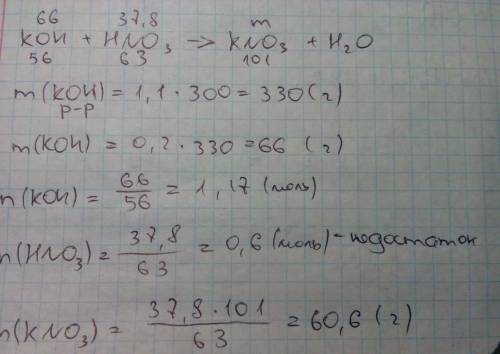 66 37,8 m
KOH + HNO₃ -> KNO₃ + H₂O
56 63 101
m(KOH) = 1,1 · 300 = 330 (г)
р-р
m(KOH) = 0,2 · 330 = 66 (г)
n(KOH) = 66/56 = 1,17 (моль)
n(HNO₃) = 37,8/63 = 0,6 (моль) - недостаток
m(KNO₃) = 37,8 · 101/63 = 60,6 (г)